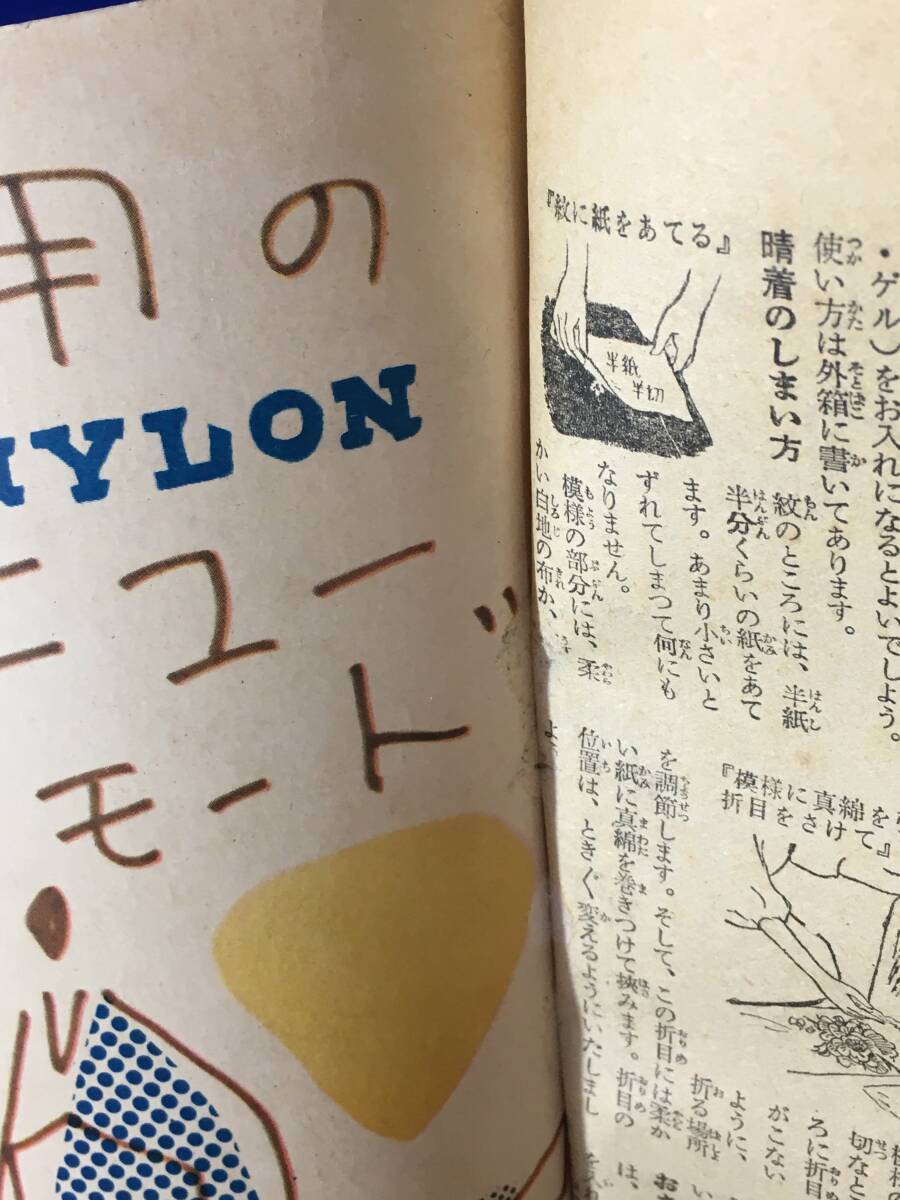 用の
NYLON
ニュー
モード
・ゲル)をお入れになるとよいでしよう。
使い方は外箱に書いてあります。
晴着のしまい方
『紋に紙をあてる』
半紙
半切
紋のところには、半紙
半分くらいの紙をあて
ます。あまり小さいと
ずれてしまつて何にも
なりません。
模様の部分には、柔
かい白地の布か、
『模様に真綿を
折目をさけて』
切なと
ろに折目
がこない
ように、
折る場所
を調節します。そして、この折目には柔か
い紙に真綿を巻きつけて挟みます。折目の
位置は、ときぐ変えるようにいたしまし